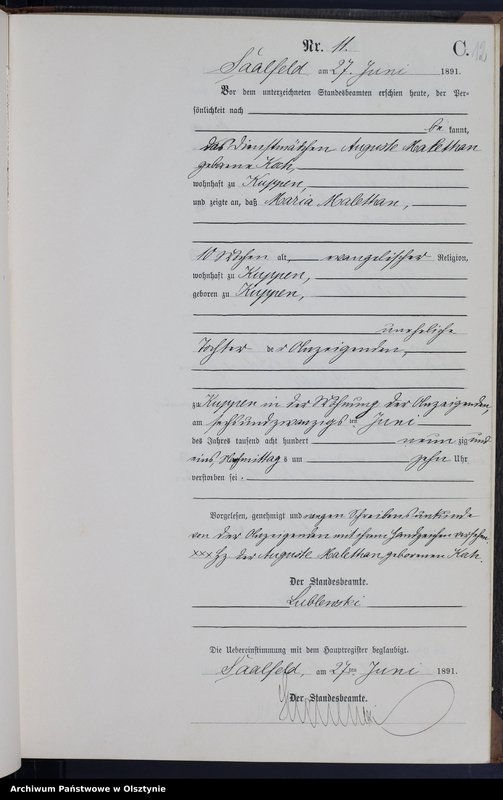 Nr. 11.
C. 12
Saalfeld am 27. Juni 1891.
Vor dem unterzeichneten Standesbeamten erschien heute, der Per-
sönlichkeit nach
be kannt,
das Dienstmädchen Auguste Malethan
geborene Koch,
wohnhaft zu Kuppen,
und zeigte an, daß Maria Malethan,
10 Wochen alt, evangelischer Religion,
wohnhaft zu Kuppen,
geboren zu Kuppen,
uneheliche
Tochter der Anzeigenden,
zu Kuppen in der Wohnung der Anzeigenden,
am sechsundzwanzigsten Juni
des Jahres tausend acht hundert neun zig und
eins, Nachmittags um zehn Uhr
verstorben sei.
Vorgelesen, genehmigt und wegen Schreibensunkunde
von der Anzeigenden mit ihrem Handzeichen versehen.
xxx Hz der Auguste Malethan geborenen Koch.
Der Standesbeamte.
Lublewski
Die Uebereinstimmung mit dem Hauptregister beglaubigt.
Saalfeld, am 27ten Juni 1891.
Der Standesbeamte.
Archiwum Państwowe w Olsztynie